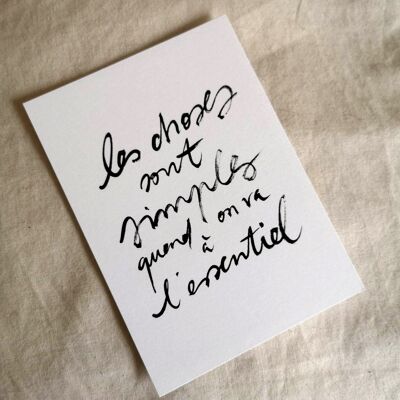 les choses
sont
simples
quand on va
à
l'essentiel